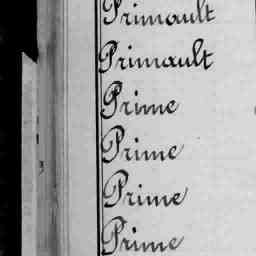 Primault
Primault
Prime
Prime
Prime
Prime